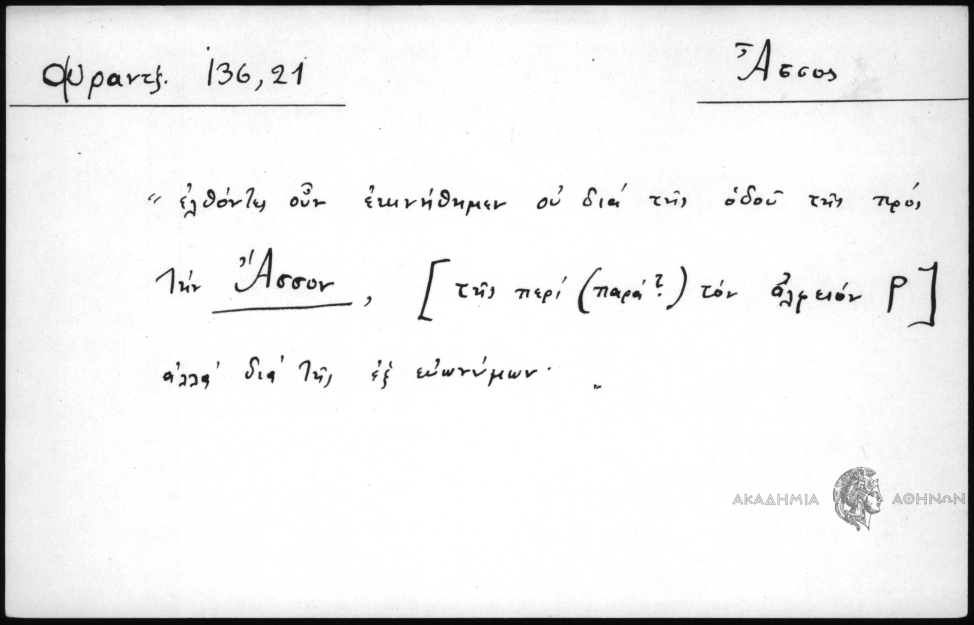 Φραντζ. 136,21 Ἄσσος
“ ἐλθόντες οὖν ἐκινήθημεν οὐ διά τῆς ὁδοῦ τῆς πρός
τήν Ἄσσον, [ τῆς περί (παρά?) τόν ἀλφειόν P ]
ἀλλά διά τῆς ἐξ εὐωνύμων· „
ΑΚΑΔΗΜΙΑ ΑΘΗΝΩΝ